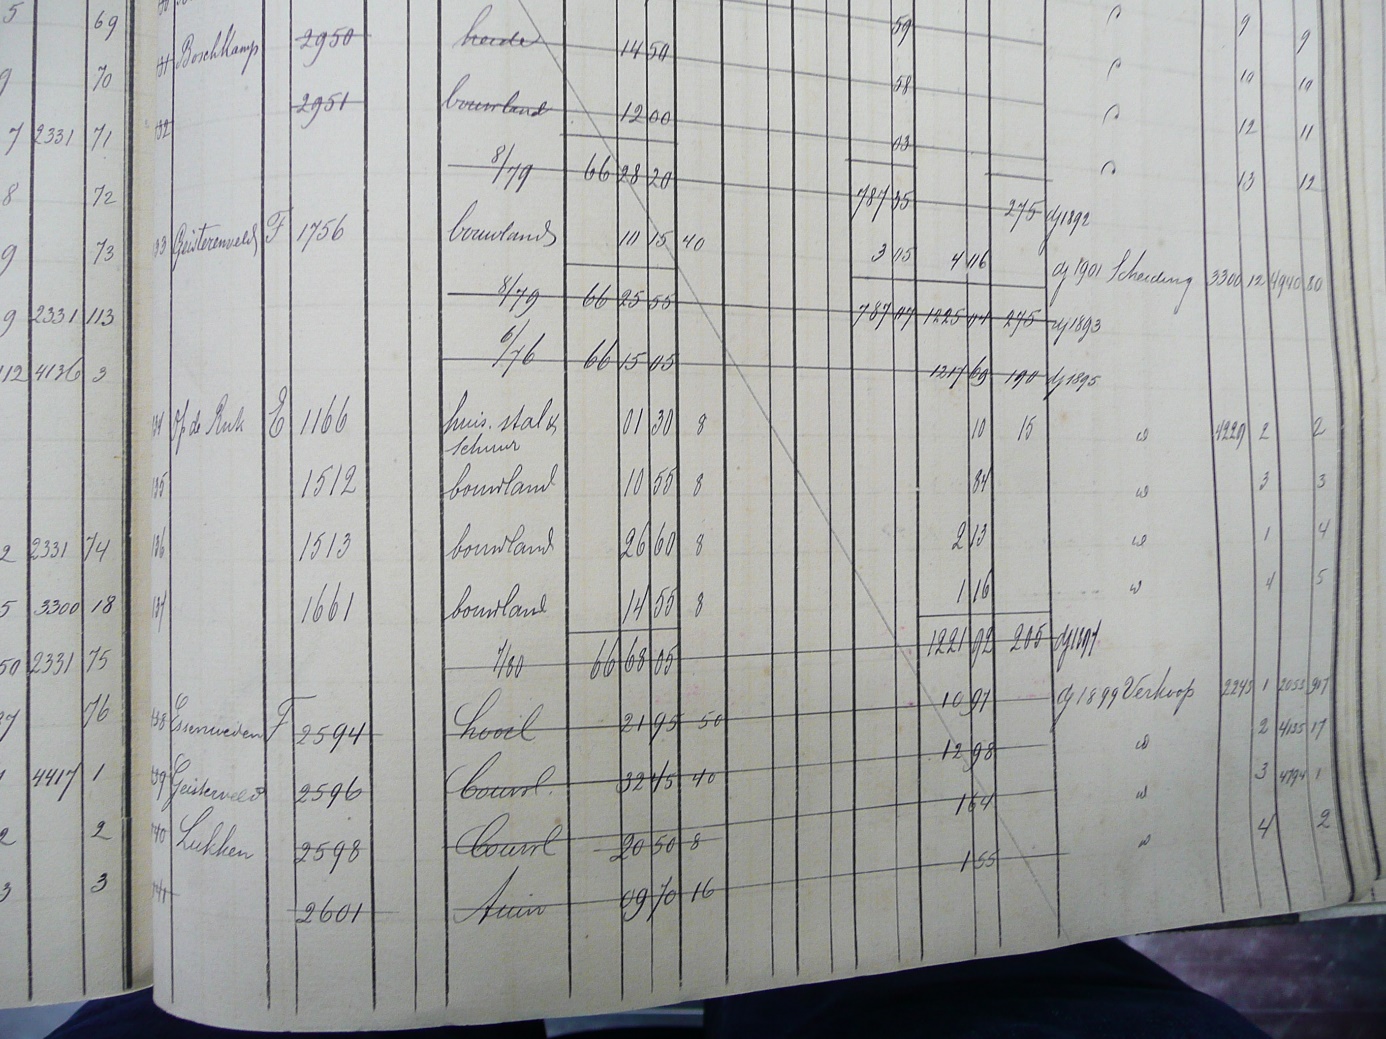 5 69
131 Boschkamp 2950 heide 14 50 59 9 9
9 70
132 2951 bouwland 12 00 58 10 10
7 2331 71
03 12 11
8/79 66 28 20 787 35 275 dj 1892 13 12
8 72
133 Geisterenveld F 1756 bouwland 10 15 40 3 05 4 06 dj 1901 Scheiding 3300 12 4940 80
9 73
8/79 66 25 55 787 07 1225 04 275 dj 1893
9 2331 113
6/76 66 15 05 1217 69 190 dj 1895
112 4136 3
134 Op de Ruk E 1166 huis. stal & 01 30 8 10 15 4229 2 2
schuur
135 1512 bouwland 10 55 8 84 3 3
136 1513 bouwland 26 60 8 2 13 1 4
2 2331 74
137 1661 bouwland 14 55 8 1 16 4 5
5 3300 18
7/80 66 68 05 1221 92 205 dj 1897
50 2331 75
138 F 2594 21 95 50 10 97 dj 1899 Verkoop 2243 1 2055 907
37 76
139 Geisterveld 2596 Bouwl. 32 45 40 12 98 2 4135 17
1 4417 1
140 Lukken 2598 Bouwl 20 50 8 1 64 3 4794 1
2 2
141 2601 tuin 09 70 16 1 55 4 2
3 3